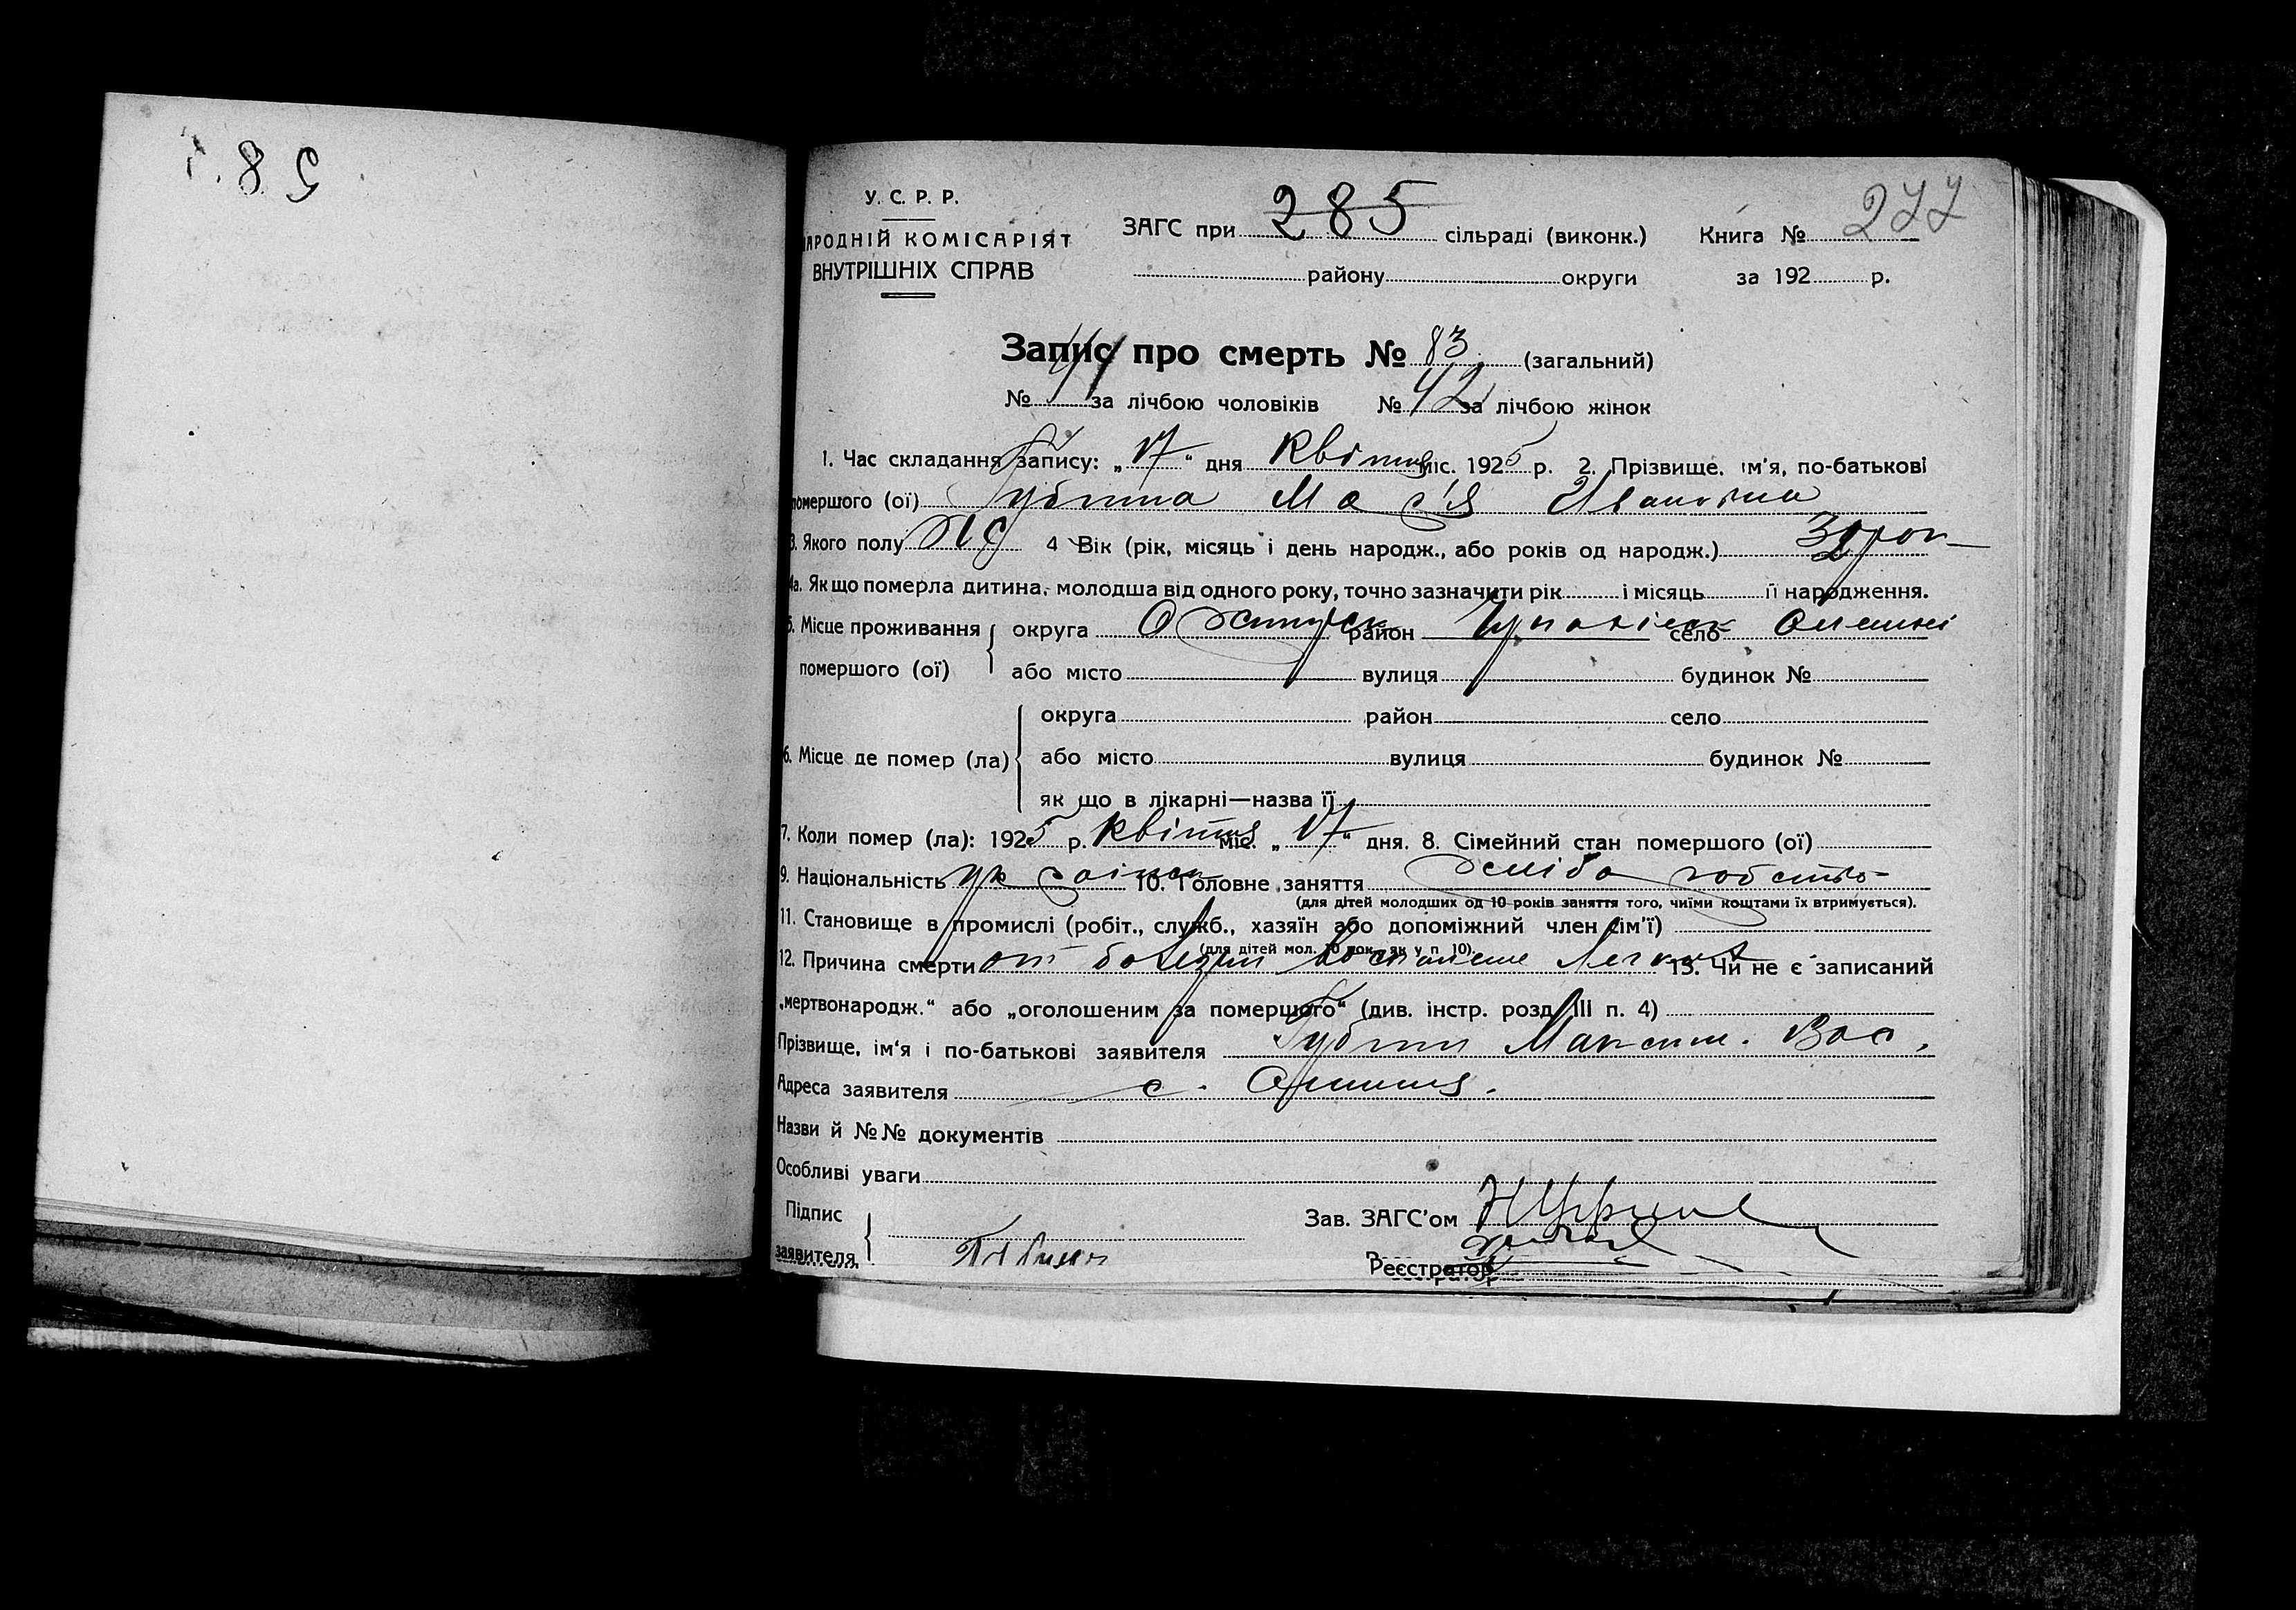 285
У. С. Р. Р.
НАРОДНІЙ КОМІСАРІЯТ
ВНУТРІШНІХ СПРАВ
ЗАГС при 285 сільраді (виконк.) Книга № 277
району округи за 192 р.
Запис про смерть № 83 (загальний)
№ 41 за лічбою чоловіків № 42 за лічбою жінок
1. Час складання запису: „17“ дня Квітня міс. 1925 р. 2. Прізвище, ім'я, по-батькові
помершого (ої) Губина Марія Ивановна
3. Якого полу Жін 4 Вік (рік, місяць і день народж., або років од народж.) 32 рок
4а. Як що померла дитина, молодша від одного року, точно зазначити рік і місяць її народження.
5. Місце проживання округа район село
помершого (ої) або місто вулиця будинок №
округа район село
6. Місце де помер (ла) або місто вулиця будинок №
як що в лікарні—назва її
7. Коли помер (ла): 1925 р. Квітня міс. „17“ дня. 8. Сімейний стан помершого (ої)
9. Національність українск 10. Головне заняття хліборобство
(для дітей молодших од 10 років заняття того, чиїми коштами їх втримується).
11. Становище в промислі (робіт., служб., хазяїн або допоміжний член сім'ї)
(для дітей мол. 10 рок. як у п 10)
12. Причина смерти от болезни Воспаление Легких 13. Чи не є записаний
„мертвонародж.“ або „оголошеним за помершого“ (див. інстр. розд. III п. 4)
Прізвище, ім'я і по-батькові заявителя Губин Максим. Вас.
Адреса заявителя с.
Назви й №№ документів
Особливі уваги
Підпис
заявителя
Зав. ЗАГС'ом
Реєстратор